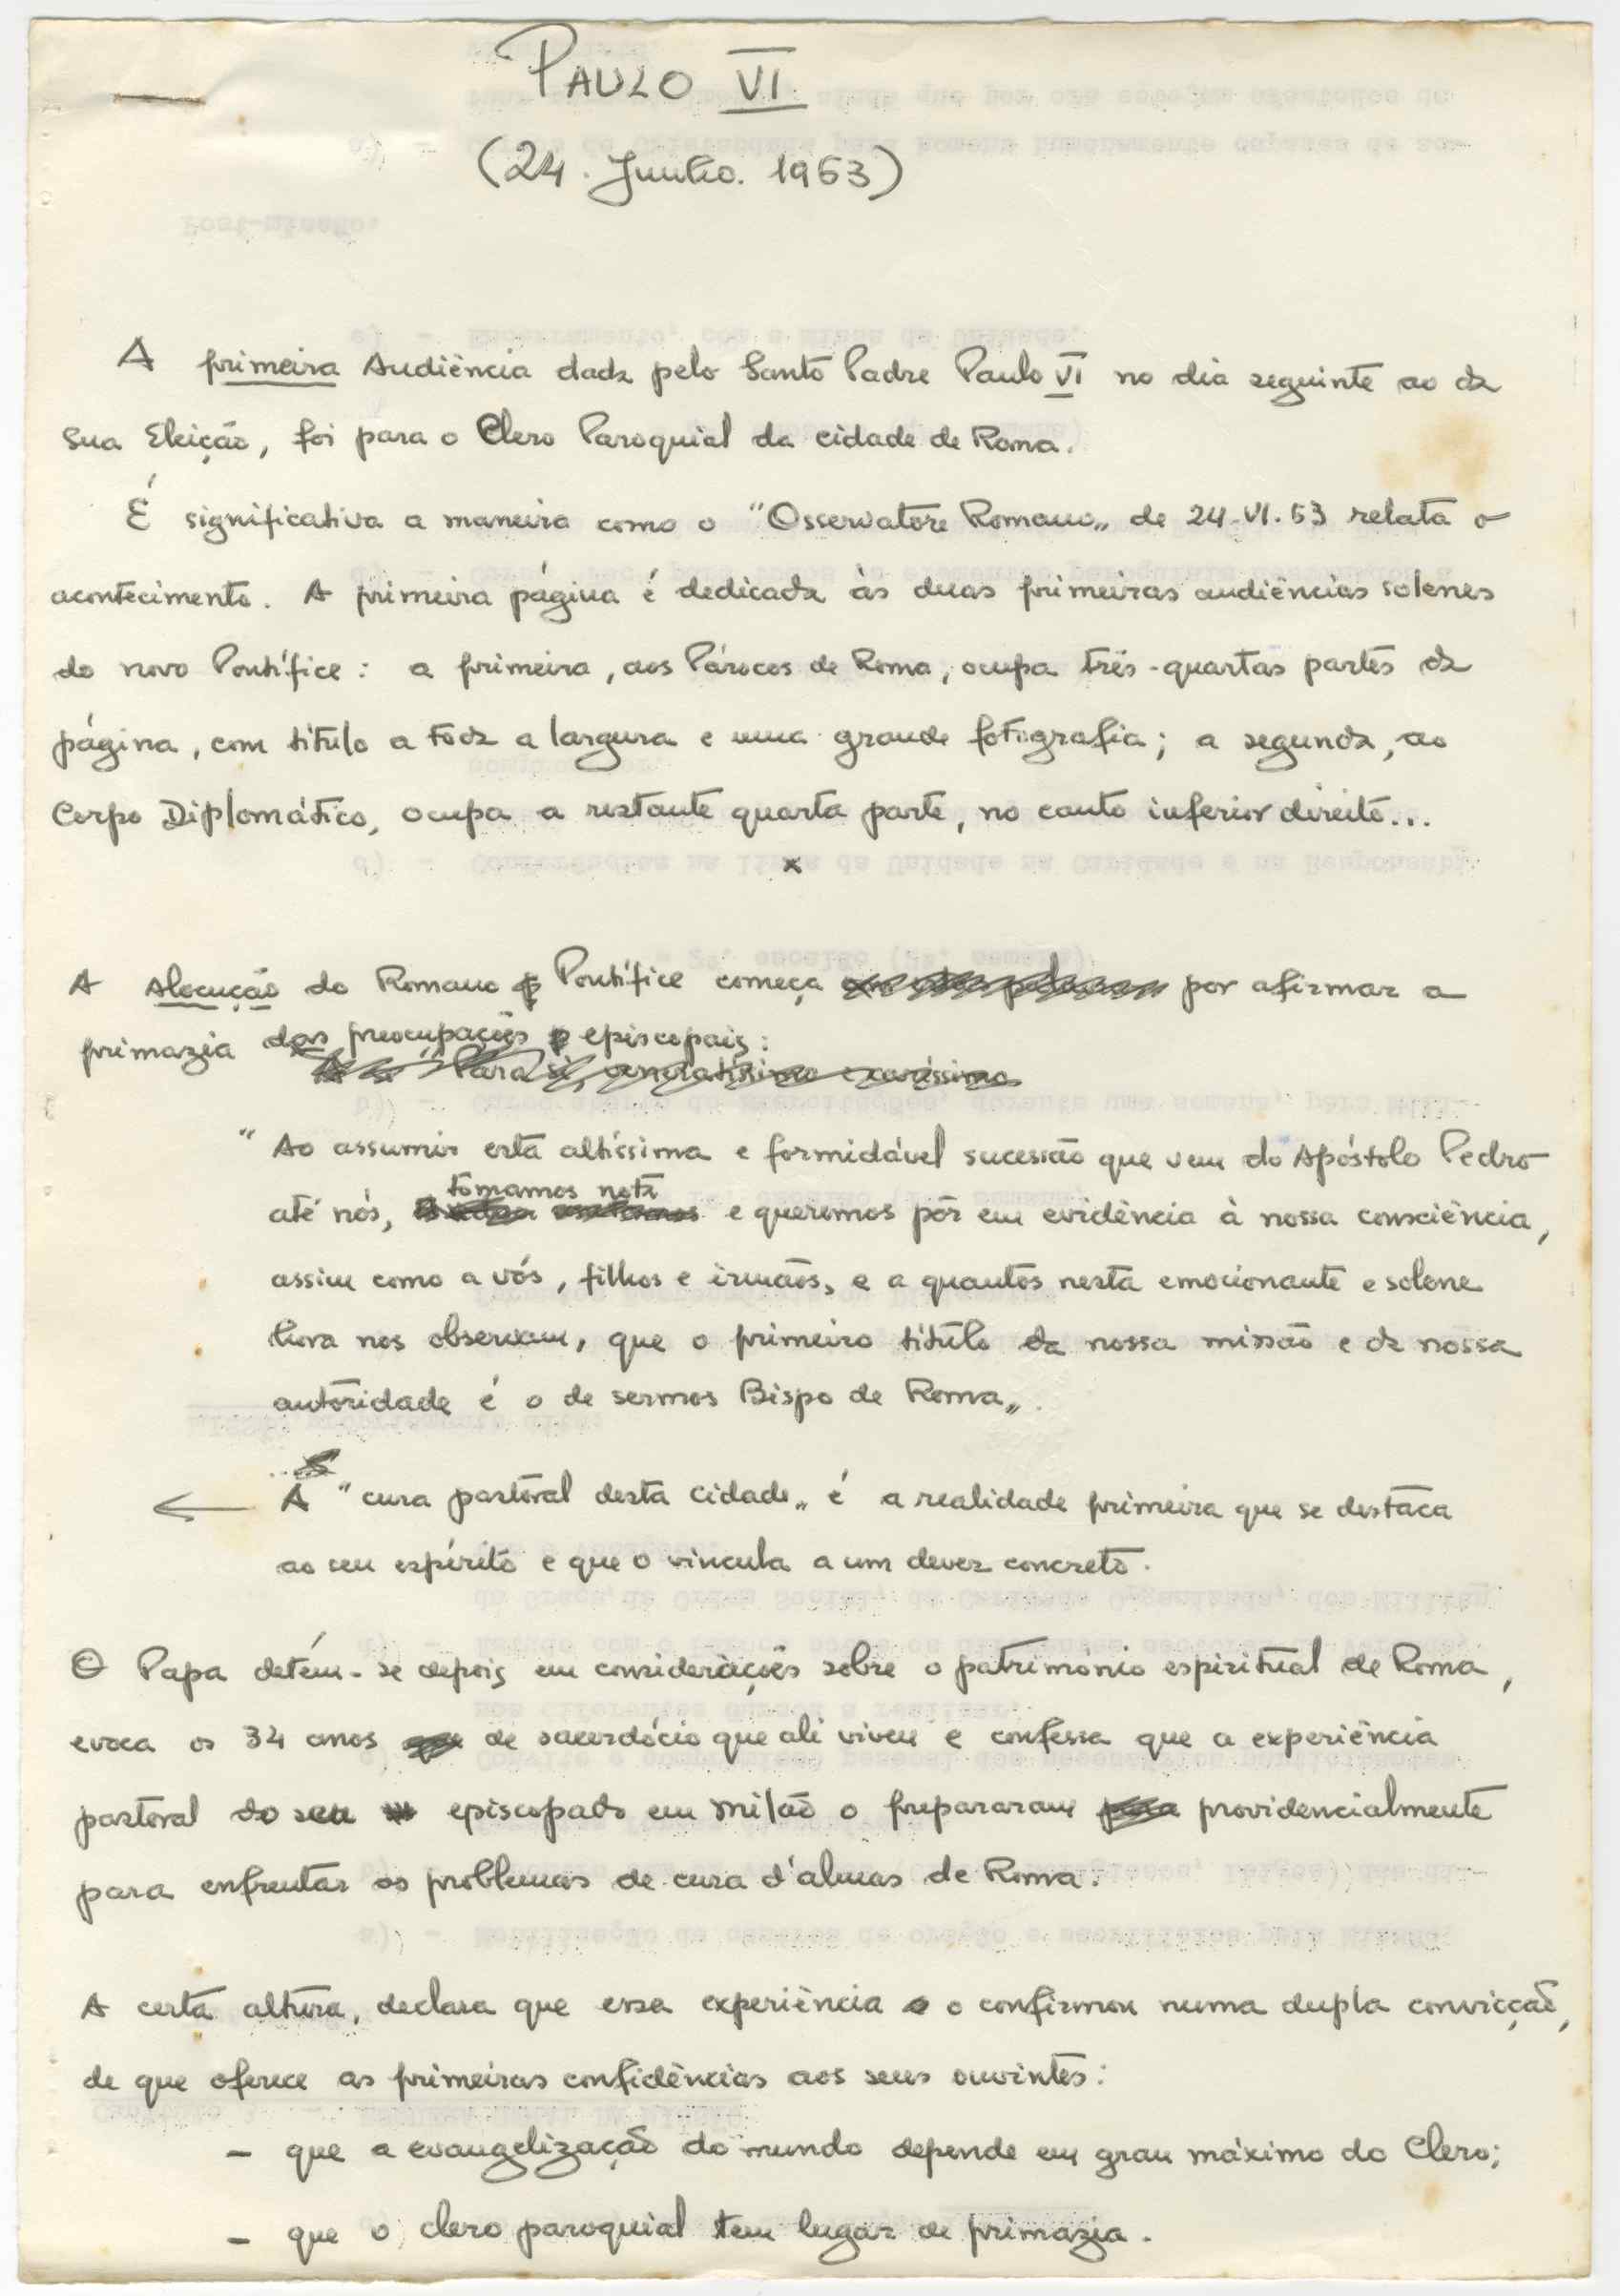 PAULO VI
(24. Junho. 1963)
A primeira Audiência dada pelo Santo Padre Paulo VI no dia seguinte ao da
sua Eleição, foi para o Clero Paroquial da cidade de Roma.
É significativa a maneira como o "Osservatore Romano„ de 24-VI-63 relata o
acontecimento. A primeira página é dedicada às duas primeiras audiências solenes
do novo Pontífice: a primeira, aos Párocos de Roma, ocupa três-quartas partes da
página, com título a toda a largura e uma grande fotografia; a segunda, ao
Corpo Diplomático, ocupa a restante quarta parte, no canto inferior direito...
x
A Alocução do Romano Pontífice começa por afirmar a
primazia das preocupações episcopais:
Para si, veneratíssimo e caríssimo
"Ao assumir esta altíssima e formidável sucessão que vem do Apóstolo Pedro
tomamos nota
até nós, e queremos pôr em evidência à nossa consciência,
assim como a vós, filhos e irmãos, e a quantos nesta emocionante e solene
hora nos observam, que o primeiro título da nossa missão e da nossa
autoridade é o de sermos Bispo de Roma„.
← A "cura pastoral desta cidade„ é a realidade primeira que se destaca
ao seu espírito e que o vincula a um dever concreto.
O Papa detém-se depois em considerações sobre o património espiritual de Roma,
evoca os 34 anos de sacerdócio que ali viveu e confessa que a experiência
pastoral do seu episcopado em Milão o prepararam providencialmente
para enfrentar os problemas de cura d'almas de Roma.
A certa altura, declara que essa experiência o confirmou numa dupla convicção,
de que oferece as primeiras confidências aos seus ouvintes:
- que a evangelização do mundo depende em grau máximo do Clero;
- que o clero paroquial tem lugar de primazia.